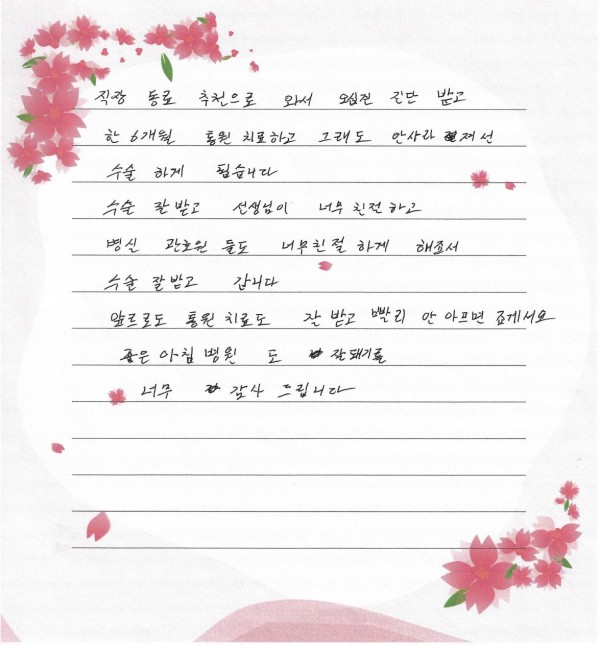 직장 동료 추천으로 와서 오십견 진단 받고
한 6개월 통원 치료하고 그래도 안사라 져선
수술 하게 됩습니다
수술 잘받고 선생님이 너무 친전하고
병신 관호원 들도 너무친절 하게 해죠서
수술 잘받고 갑니다
앞르로도 통원 치료도 잘 받고 빨리 안 아프면 죠게서요
좋은 아침 병원 도 잘돼기를
너무 감사 드립니다